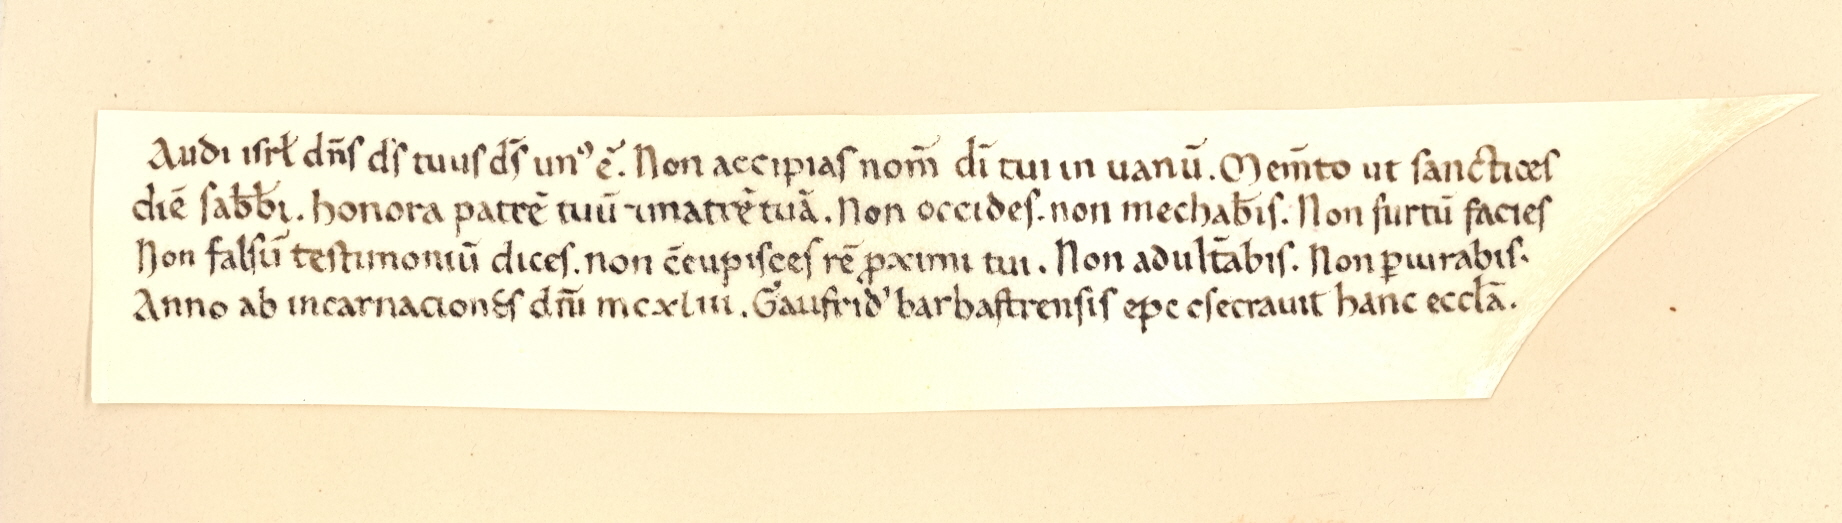 Audi isrł dn̄s ds̄ tuus ds̄ un⁹ ē. Non accipias nom̄ dī tui in uanū. Mem̄to ut sanctices
diē sab̄b̄i. honora patrē tuū ⁊ matrē tuā. Non occides. non mechab̄is. Non furtū facies
Non falsū testimoniū dices. non c̄cupisces rē ꝓximi tui. Non adult̄abis. Non ꝑiurabis.
Anno ab incarnacione dn̄i mcxliii. Gaufrid⁹ barbastrensis epc csecrauit hanc eccłā.